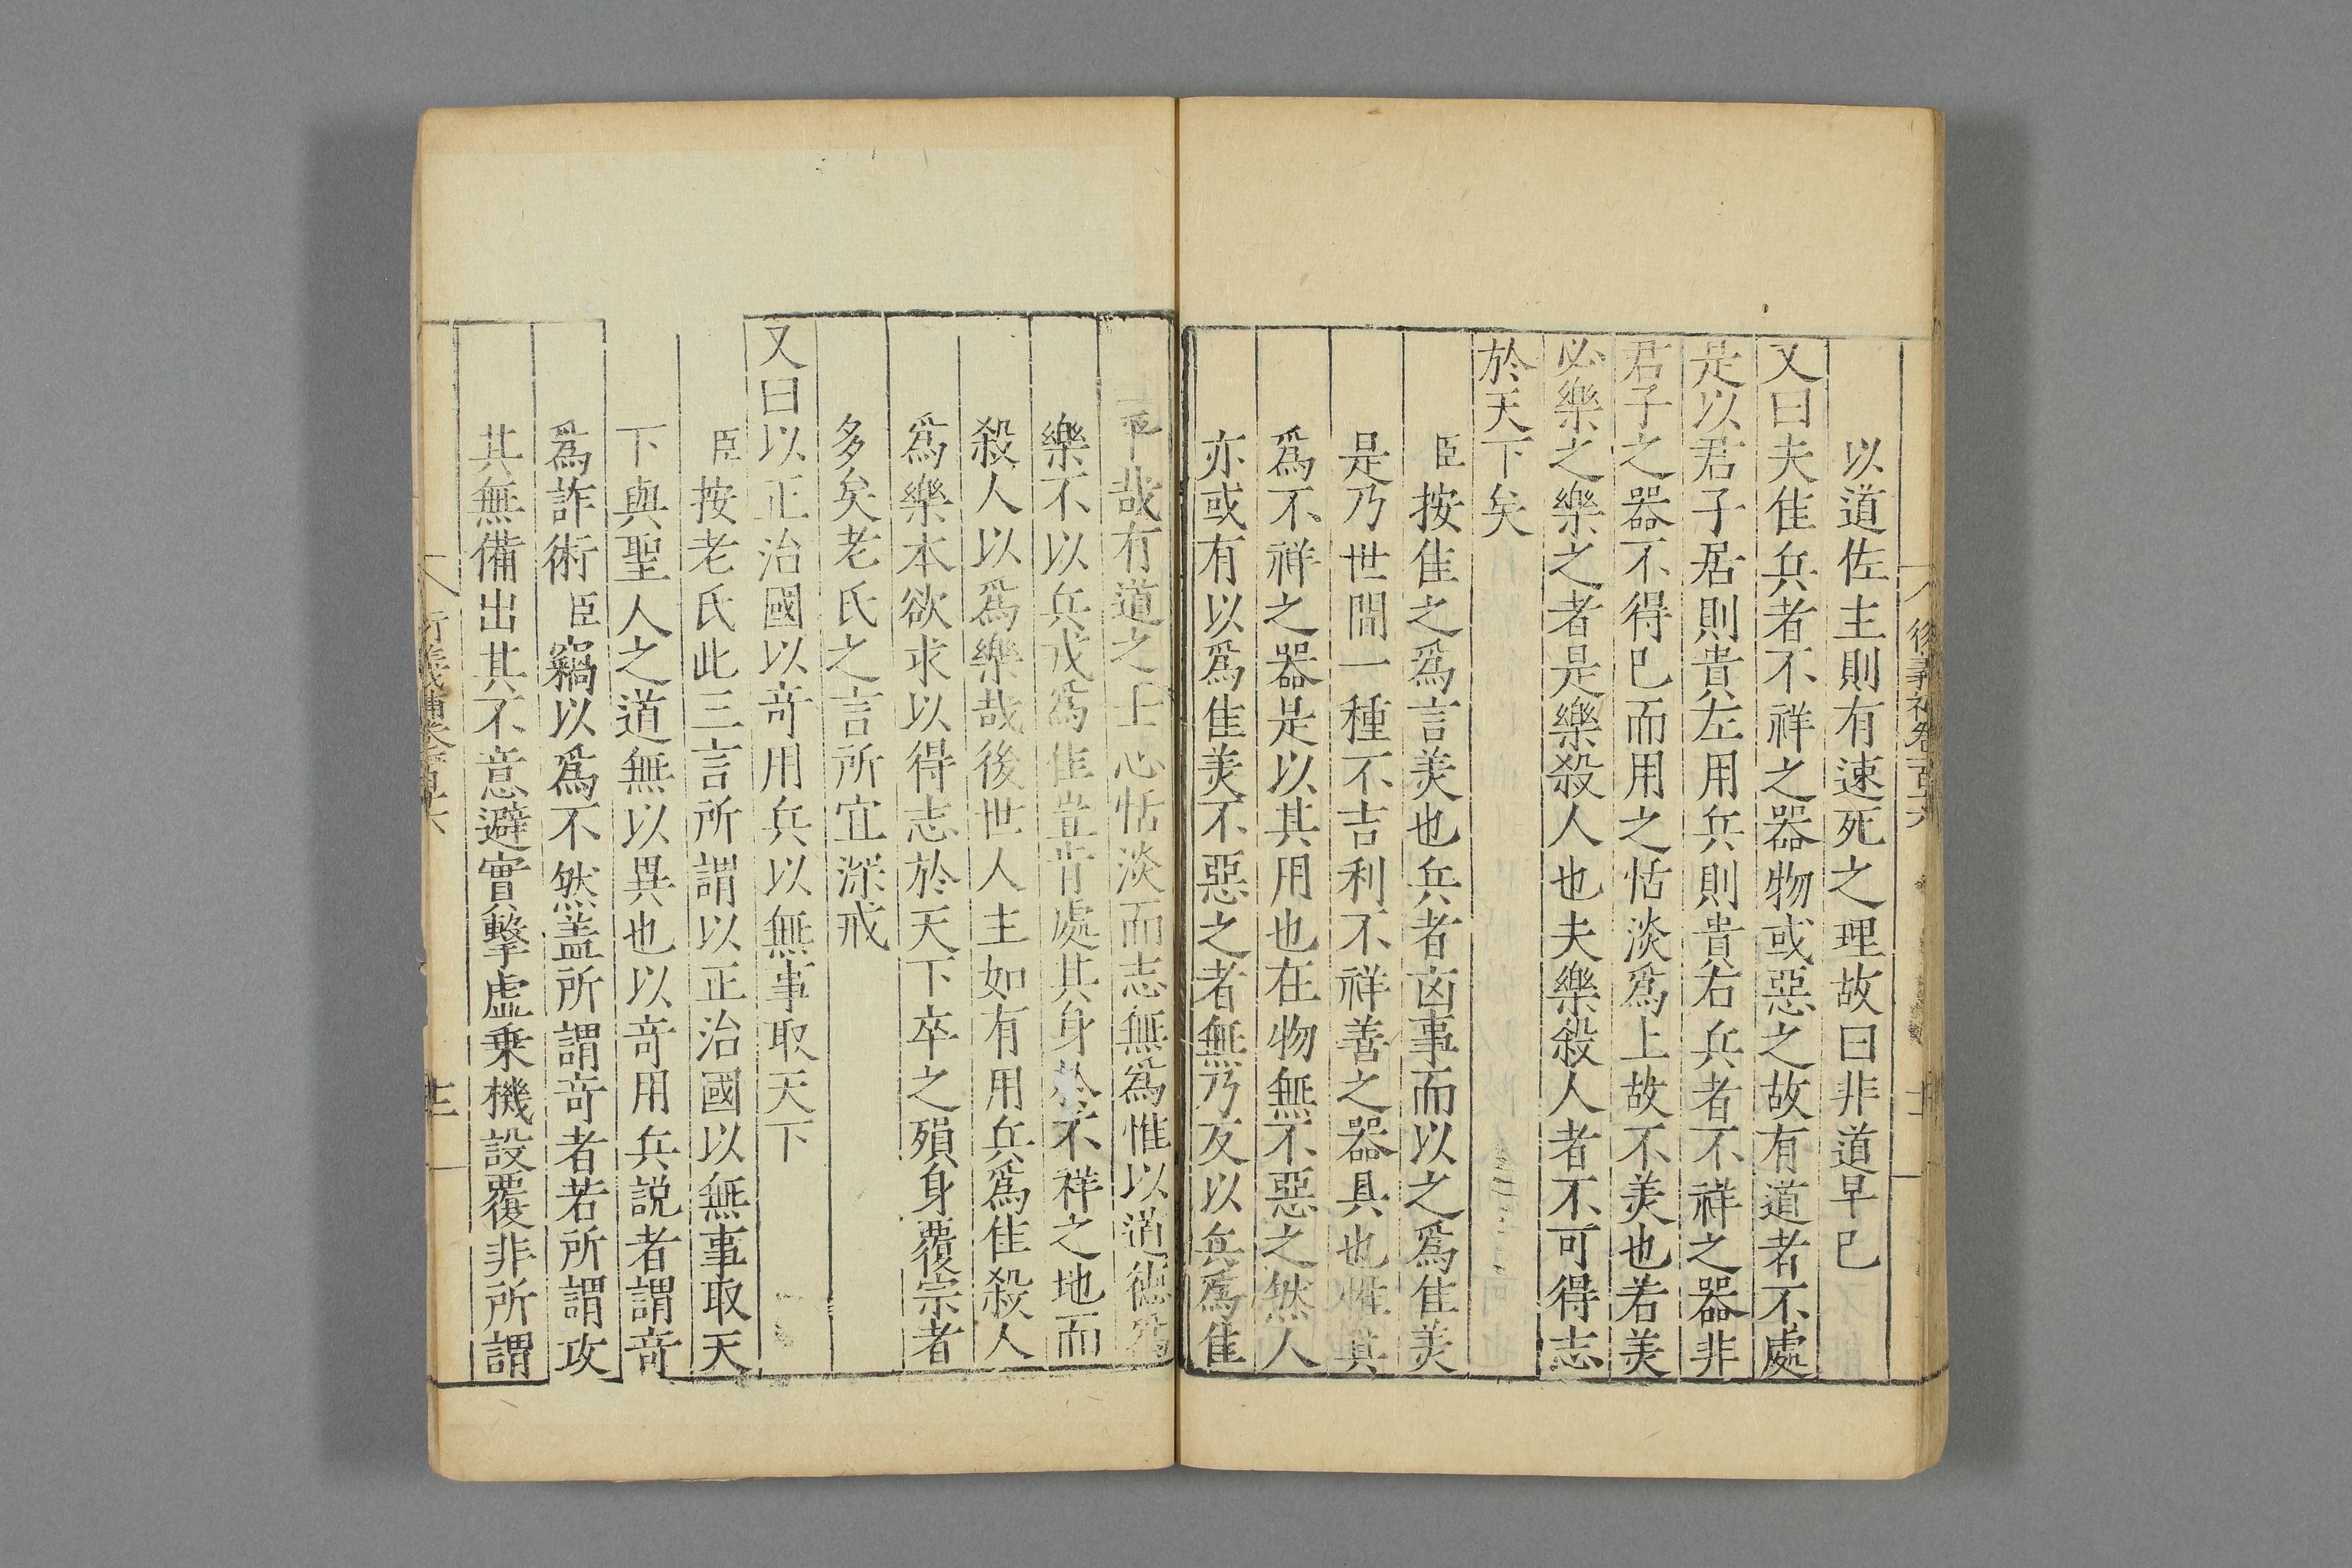 以道佐主則有速死之理故曰非道早已
又曰夫佳兵者不祥之器物或惡之故有道者不處
是以君子居則貴左用兵則貴右兵者不祥之器非
君子之器不得已而用之恬淡爲上故不羙也若羙
必樂之樂之者是樂殺人也夫樂殺人者不可得志
於天下矣
臣按佳之爲言羙也兵者凶事而以之爲佳羙
是乃世間一種不吉利不祥善之器具也惟其
爲不祥之器是以其用也在物無不惡之然人
亦或有以爲佳羙不惡之者無乃反以兵爲佳
哉有道之士心恬淡而志無爲惟以道德爲
樂不以兵戎爲佳豈肯處其身於不祥之地而
殺人以爲樂哉後世人主如有用兵爲佳殺人
爲樂本欲求以得志於天下卒之殞身覆宗者
多矣老氏之言所宜深戒
又曰以正治國以竒用兵以無事取天下
臣按老氏此三言所謂以正治國以無事取天
下與聖人之道無以異也以竒用兵説者謂竒
爲詐術臣竊以爲不然盖所謂竒者若所謂攻
其無備出其不意避實擊虛乗機設覆非所謂